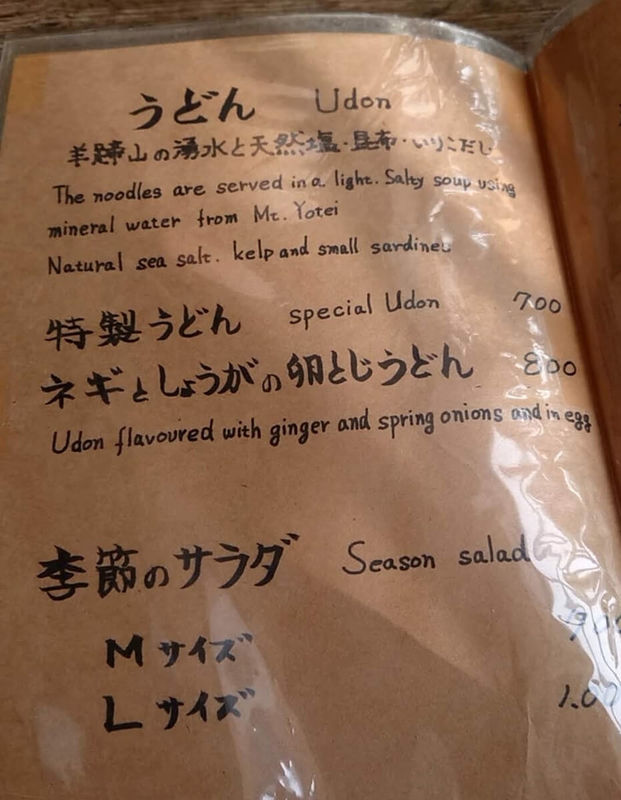 うどん Udon
羊蹄山の湧水と天然塩・昆布・いりこだし
The noodles are served in a light. Salty soup using
mineral water from Mt. Yotei
Natural sea salt. kelp and small sardines
特製うどん special Udon 700
ネギとしょうがの卵とじうどん 800
Udon flavoured with ginger and spring onions and in egg
季節のサラダ Season salad
Mサイズ
Lサイズ